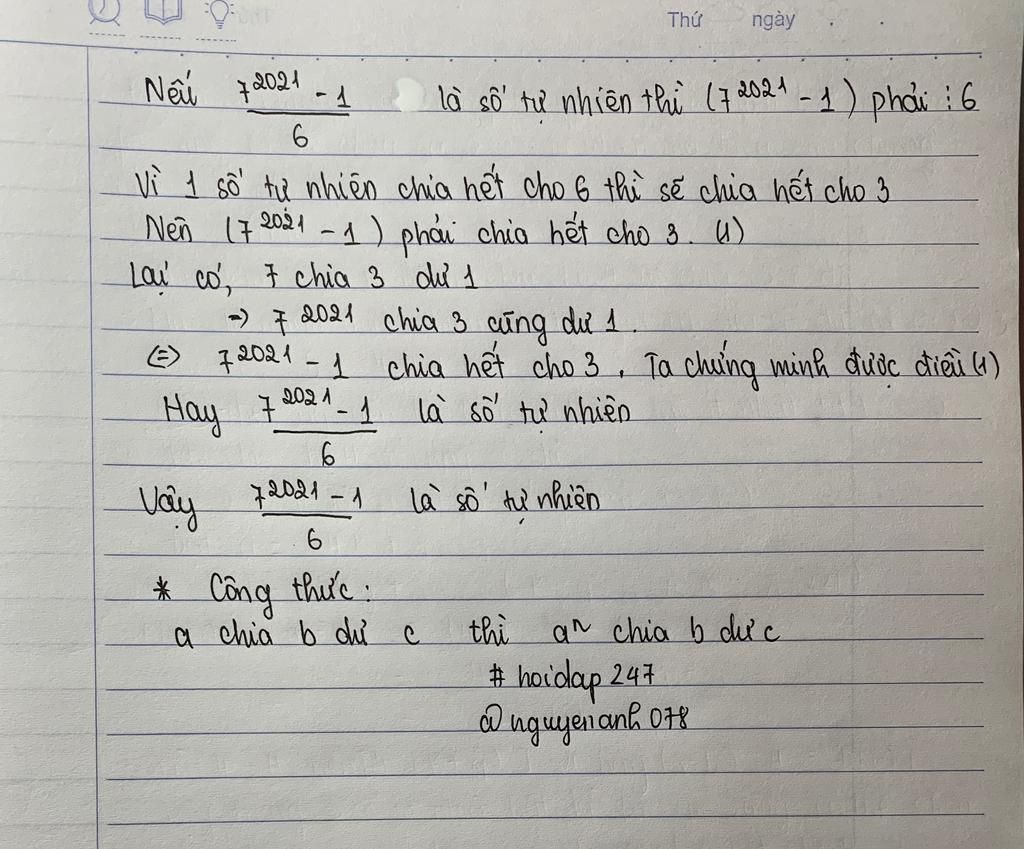 Thứ ngày . .
Nếu \frac{7^{2021} - 1}{6} là số tự nhiên thì (7^{2021} - 1) phải ⋮ 6
Vì 1 số tự nhiên chia hết cho 6 thì sẽ chia hết cho 3
Nên (7^{2021} - 1) phải chia hết cho 3. (1)
Lại có, 7 chia 3 dư 1
=> 7^{2021} chia 3 cũng dư 1.
(=) 7^{2021} - 1 chia hết cho 3. Ta chứng minh được điều (1)
Hay \frac{7^{2021} - 1}{6} là số tự nhiên
Vậy \frac{7^{2021} - 1}{6} là số tự nhiên
* Công thức:
a chia b dư c thì a^n chia b dư c
# hoidap 247
@nguyenanh 078